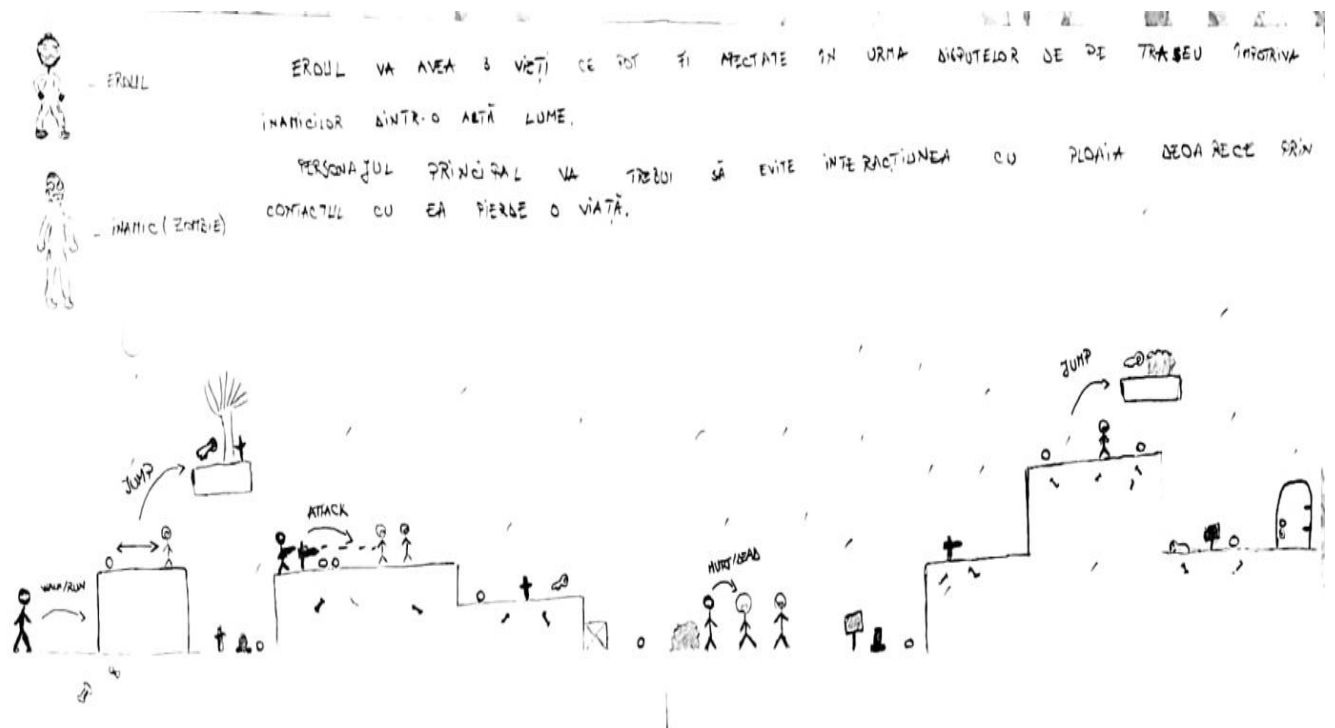 EROUL
EROUL VA AVEA 3 VIEȚI CE POT FI AFECTATE ÎN URMA DISPUTELOR DE PE TRASEU ÎMPOTRIVA
INAMICILOR DINTR-O ALTĂ LUME.
PERSONAJUL PRINCIPAL VA TREBUI SĂ EVITE INTERACȚIUNEA CU PLOAIA DEOARECE PRIN
CONTACTUL CU EA PIERDE O VIAȚĂ.
INAMIC (ZOMBIE)
JUMP
JUMP
ATTACK
HURT/DEAD
WALK/RUN